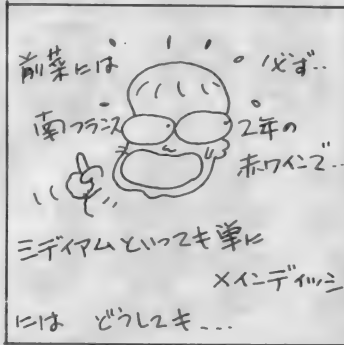 前菜には
必ず‥
南フランス
2年の
赤ワインで…
ミディアムといっても単に
メインディッシュ
には どうしても…